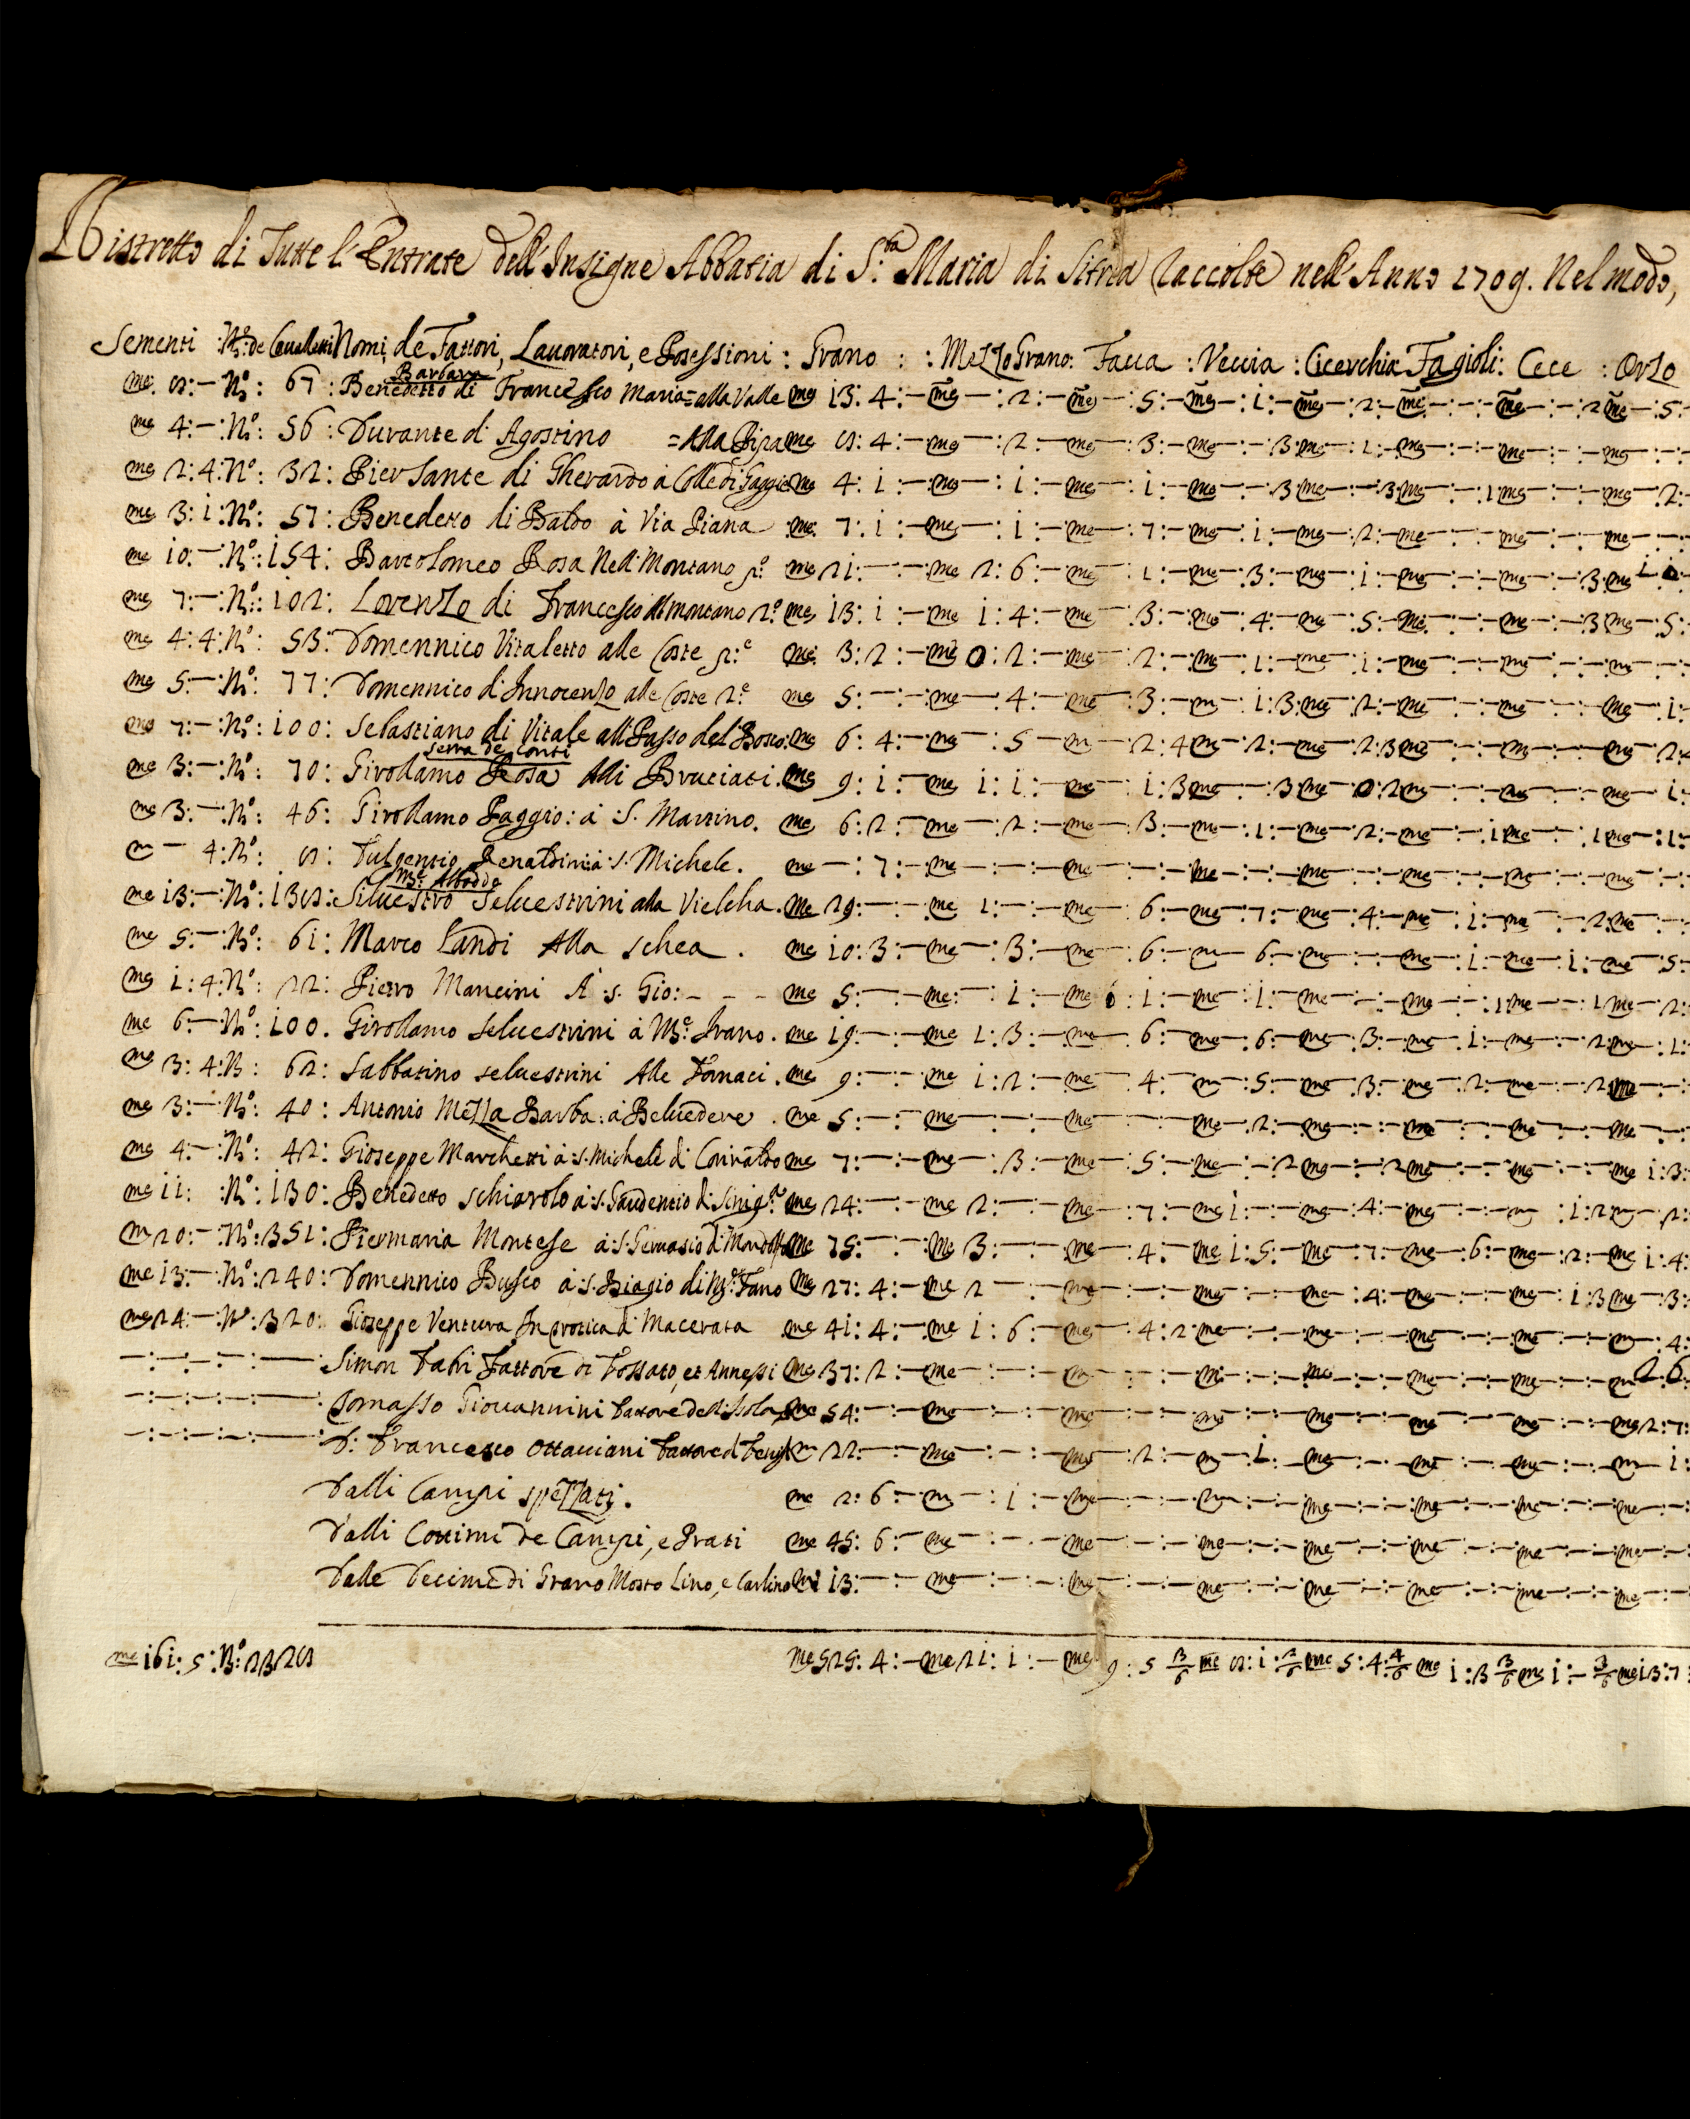 Ristretto di Tutte l'Entrate dell'Insigne Abbatia di S.ta Maria di Sitria Raccolte nell'Anno 1709. Nel modo,
Sementi : N.o de Cavalletti Nomi de Fattori, Lavoratori, e Posessioni : Grano : : Mezzo Grano : Fava : Veccia : Cicerchia Fagioli : Cece : Orzo
Barbara
me 8:—:No: 67: Benedetto di Francesco Maria = alla Valle me 13: 4:— me —: 2:— me —: 5:— me —: 1:— me —: 2:— me —:—:— me —:—: 2 me —: 5:—
me 4:—:No: 56: Durante d'Agostino = Alla Pira me 8: 4:— me —: 2:— me —: 3:— me —:—: 3: me —: 1:— me —:—:— me —:—:— me —:—:—
me 2: 4: No: 32: Piersante di Gherardo à Colle di Faggio me 4: 1:— me —: 1:— me —: 1:— me —:—: 3 me —:—: 3 me —:—: 1 me —:—:— me —: 2:—
me 3: 1: No: 57: Benedetto di Baldo à Via Piana me 7: 1:— me —: 1:— me —: 7:— me —: 1:— me —: 2:— me —:—:— me —:—:— me —:—:—
me 10:—:No: 154: Bartolomeo Rosa Nell'Montano p.o me 21:—:— me 2: 6:— me —: 1:— me —: 3:— me —: 1:— me —:—:— me —:—: 3 me 1
me 7:—:No: 102: Lorenzo di Francesco Al Montano 2.o me 13: 1:— me 1: 4:— me —: 3:— me —: 4:— me —: 5:— me —:—:— me —:—: 3 me —: 5:—
me 4: 4: No: 53: Domennico Vitaletto alle Coste p.e me 3: 2:— me 0: 2:— me —: 2:— me —: 1:— me —: 1:— me —:—:— me —:—:— m —:—:—
me 5:—:No: 77: Domennico d'Innocenzo alle Coste 2.e me 5:—:— me —: 4:— me —: 3:— m —: 1: 3: me —: 2:— me —:—:— me —:—:— me —: 1:—
me 7:—:No: 100: Sebastiano di Vitale all'Passo del Bosco: me 6: 4:— me —: 5:— m —: 2: 4 me —: 2:— me —: 2: 3 me —:—:— m —:—:— me —: 2:—
Serra de Conti
me 3:—:No: 70: Girollamo Rosa Alli Bruciati. me 9: 1:— me 1: 1:— me —: 1: 3 me —:—: 3 me —: 0: 2 me —:—:— me —:—:— me —: 1:—
me 3:—:No: 46: Girollamo Faggio: à S. Martino. me 6: 2:— me —: 2:— me —: 3:— me —: 1:— me —: 2:— me —:—: 1 me —:—: 1 me —: 1:—
m — 4: No: 8: Fulgentio Renaldini à S. Michele. me —: 7:— me —:—:— me —:—:— me —:—:— me —:—:— me —:—:— me —:—:— me —:—:—
M.e Albodda
me 13:—:No: 138: Silvestro Selvestrini alla Vielcha. me 29:—:— me 1:—:— me —: 6:— me —: 7:— me —: 4:— me —: 1:— me —:—: 2: me —:—:—
me 5:—:No: 61: Marco Landi Alla schea. me 10: 3:— me —: 3:— me —: 6:— m —: 6:— me —:—:— me —: 1:— me —: 1:— me —: 5:—
me 1: 4: No: 22: Pietro Mancini A' S. Gio: - - - me 5:—:— me —: 1:— me : 1:— me —: 1:— me —:—:— me —:—: 1 me —:—: 1 me —: 2:—
me 6:—:No: 100. Girollamo Selvestrini à M.e Irano. me 19:—:— me 1: 3:— me —: 6:— me —: 6:— me —: 3:— me —: 1:— me —:—: 2 me —: 1:—
me 3: 4: N: 62: Sabbatino Selvestrini Alle Fornaci. me 9:—:— me 1: 2:— me —: 4:— m —: 5:— me —: 3:— me —: 2:— me —:—: 2 me —:—:—
me 3:—:No: 40: Antonio Mezza Barba: à Belvedere. me 5:—:— me —:—:— me —:—:— me —: 2:— me —:—:— me —:—:— me —:—:— me —:—:—
me 4:—:No: 42: Gioseppe Marchetti à S. Michele di Corinaldo me 7:—:— me —: 3:— me —: 5:— me —:—: 2 me —:—: 2 me —:—:— me —:—:— me 1: 3:
me 11: :No: 130: Benedetto Schiarolo à S. Gaudentio di Sinig.a me 24:—:— me 2:—:— me —: 7:— me 1:—:— me —: 4:— me —:—:— m —: 1: 2 m —: 2:
m 20:—:No: 351: Piermaria Montese à S. Gervasio di Mondolfo me 75:—:— me 3:—:— me —: 4:— me 1: 5:— me —: 7:— me —: 6:— me —: 2:— me 1: 4:
me 13:—:No: 240: Domennico Busco à S. Biagio di M.e Fano me 27: 4:— me 2 —:— me —:—:— me —:—:— me —: 4:— me —:—:— me —: 1: 3 me —: 3:
me 24:—:No: 320: Gioseppe Ventura In protica di Macerata me 41: 4:— me 1: 6:— me —: 4: 2 me —:—:— me —:—:— me —:—:— me —:—:— m —: 4:
—:—:—:—:— Simon Fabi Fattore di Fossato, et Annessi me 37: 2:— me —:—:— m —:—:— m —:—:— me —:—:— me —:—:— me —:—:— m 2 6
—:—:—:—:— Tomasso Giovannini Fattore dell'Isola me 54:—:— me —:—:— me —:—:— me —:—:— me —:—:— me —:—:— me —:—:— me 2: 7:
—:—:—:—:— D. Francesco Ottacciani Fattore di m 22:—:— me —:—:— me —: 2:— m —: 1:— me —:—:— me —:—:— me —:—:— m — 1:
Dalli Campi spezzati. me 2: 6:— m —: 1:— me —:—:— m —:—:— me —:—:— me —:—:— me —:—:— me —:—:—
Dalli Cottimi de Campi, e Prati me 45: 6:— me —:—:— me —:—:— me —:—:— me —:—:— me —:—:— me —:—:— me —:—:—
Dalle Decime di Grano Mosto Lino, e Carlino me 13:—:— me —:—:— me —:—:— me —:—:— me —:—:— me —:—:— me —:—:— me —:—:—
me 161: 5: No: 2328 me 525: 4:— me 21: 1:— me 9: 5 3/6 me 8: 1: 2/6 me 5: 4: 4/6 me 1: 3 3/6 me 1:— 3/6 me 13: 7: